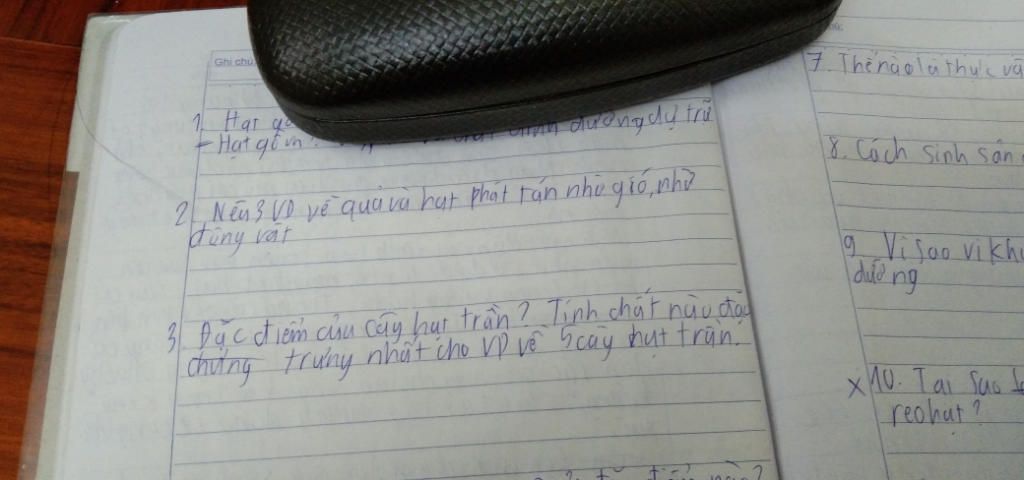 Ghi chú
1. Hạt gồ
- Hạt gồm dinh dưỡng dự trữ
2. Nêu 3 VD về quả và hạt phát tán nhờ gió, nhờ
động vật
3. Đặc điểm của cây hạt trần? Tính chất nào đặc
chứng trưng nhất cho VD về 5 cây hạt trần.
7. Thế nào là thực vậ
8. Cách sinh sản
9. Vì sao vi kh
dưỡng
x 10. Tại sao
reo hạt?